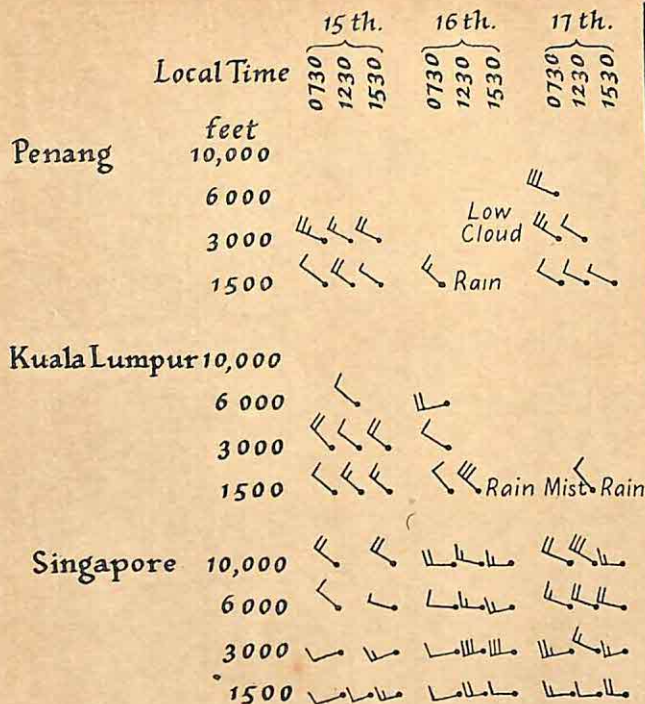 15th. 16th. 17th.
Local Time 0730 1230 1530 0730 1230 1530 0730 1230 1530
feet
Penang 10,000
6000
Low
3000 Cloud
1500 Rain
Kuala Lumpur 10,000
6000
3000
1500 Rain Mist Rain
Singapore 10,000
6000
3000
1500